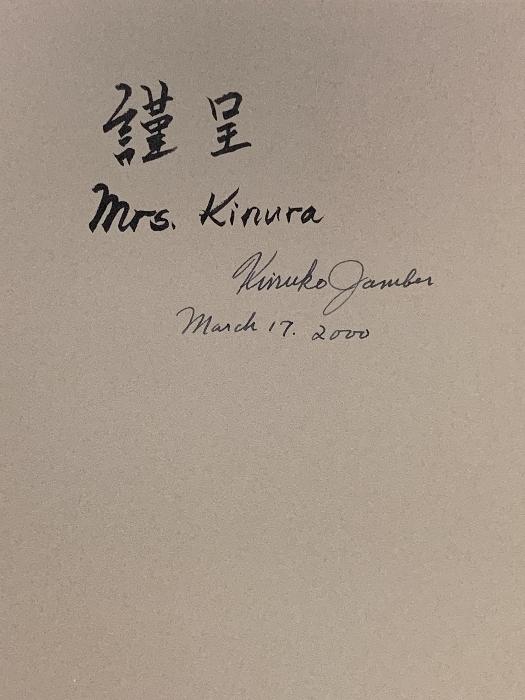 謹呈
Mrs. Kinura
Kinuko Jambor
March 17. 2000